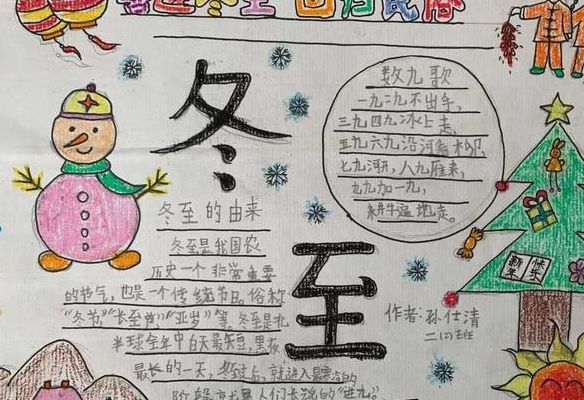 喜迎冬至 回归民俗
冬
至
数九歌
一九二九不出手,
三九四九冰上走,
五九六九沿河看柳,
七九河开,八九雁来,
九九加一九,
耕牛遍地走。
冬至的由来
冬至是我国农
历史一个非常重要
的节气,也是一个传统节日。俗称
"冬节""长至节""亚岁"等,冬至是北
半球全年中白天最短,黑夜
最长的一天,冬至过后,就进入最寒冷的
阶段,
人们长说的"进九"。
新年
快乐
作者:孙仕清
二(1)班